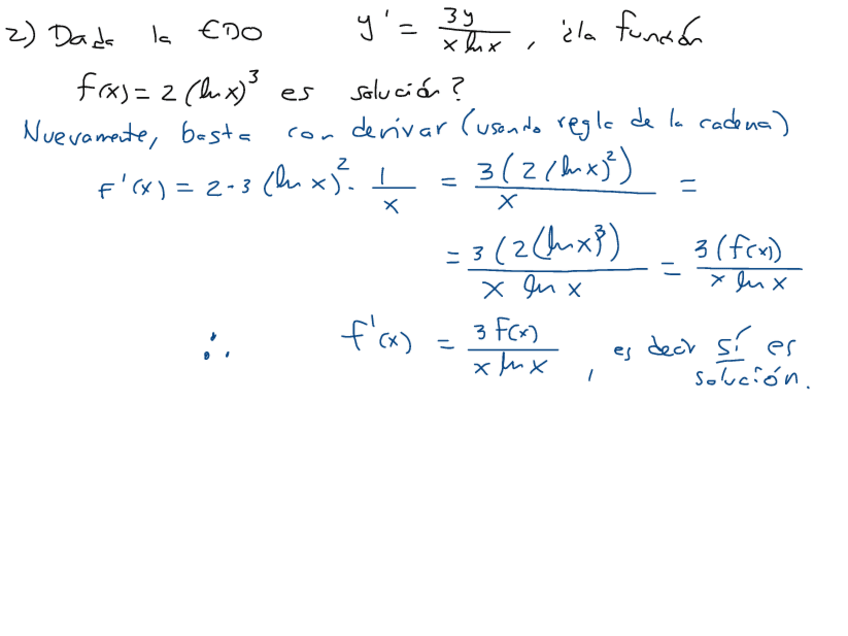 2) Dada la EDO y' = 3y / (x ln x), ¿la función
f(x) = 2 (ln x)^3 es solución?
Nuevamente, basta con derivar (usando regla de la cadena)
F'(x) = 2·3 (ln x)^2 · 1/x = 3(2(ln x)^2) / x =
= 3(2(ln x)^3) / (x ln x) = 3(f(x)) / (x ln x)
∴ f'(x) = 3 F(x) / (x ln x), es decir sí es
solución.